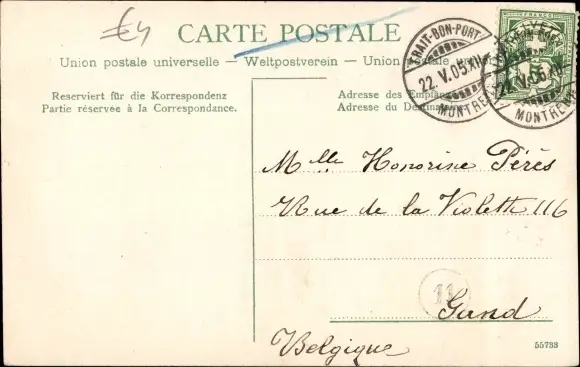 €4
CARTE POSTALE
Union postale universelle — Weltpostverein — Union postale
Reserviert für die Korrespondenz
Partie réservée à la Correspondance.
Adresse des
Adresse du
TRAIT-BON-PORT
22.V.05.XII
MONTREUX
22.V.05.XII
MONTREUX
Mlle Honorine Pérès
Rue de la Violette 116
11
Gand
Belgique
55733